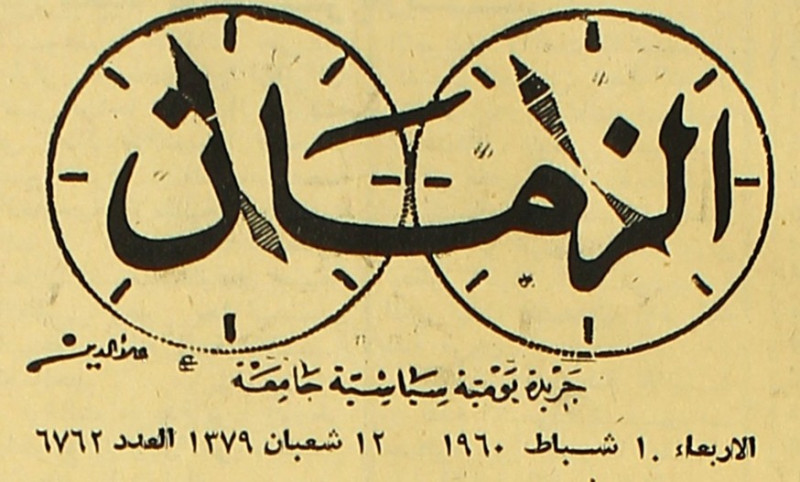 الزمان
علاء الدين
جريدة يومية سياسية جامعة
الاربعاء ١٠ شباط ١٩٦٠ ١٢ شعبان ١٣٧٩ العدد ٦٧٦٢